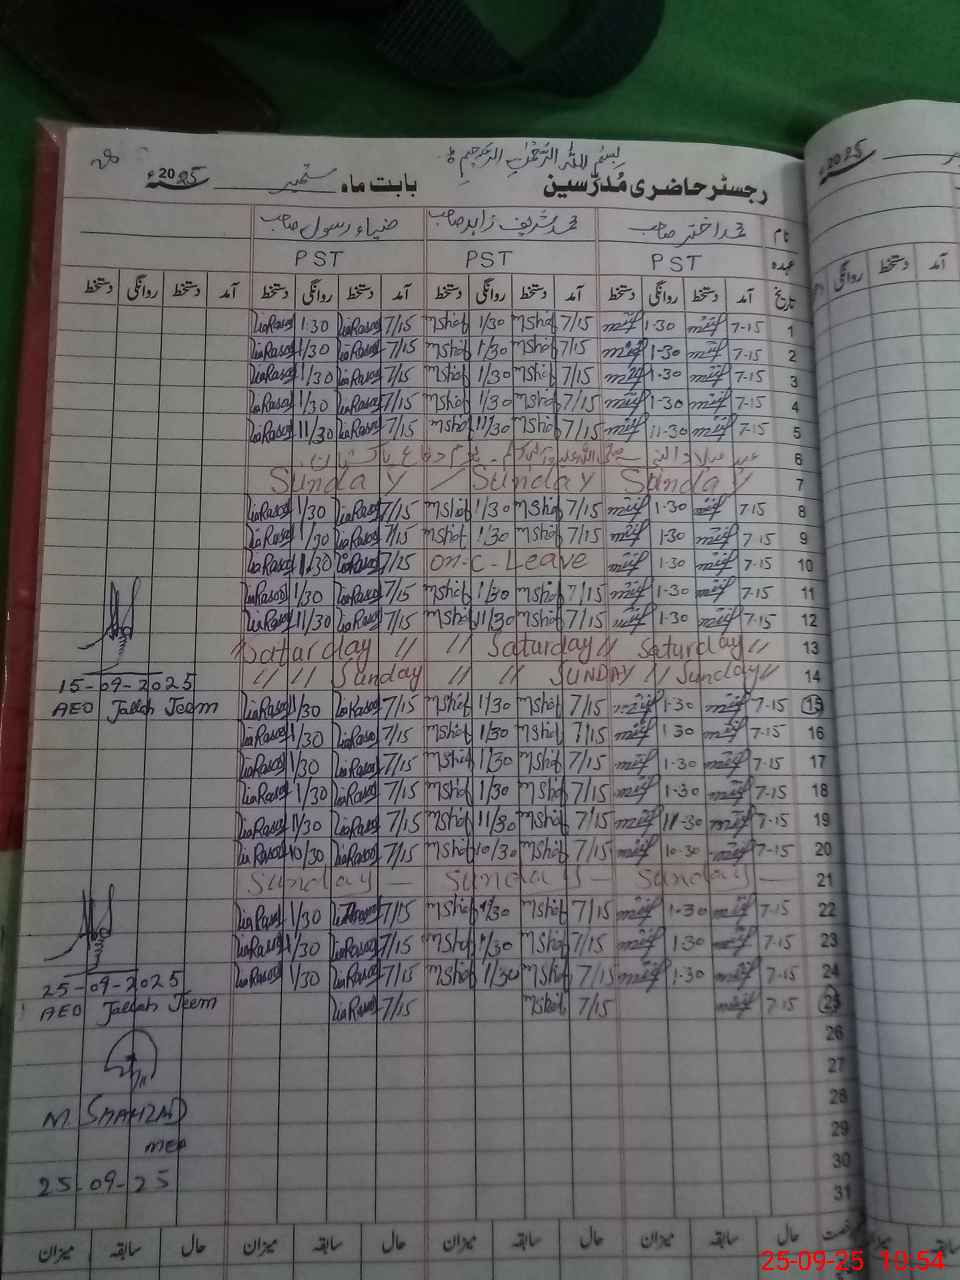 بِسْمِ اللّٰہِ الرَّحْمٰنِ الرَّحِیْمِ
رجسٹر حاضری مُدرّسین بابت ماہ ستمبر 2025ء
نام محمد اختر صاحب محمد شریف زاہد صاحب ضیاء رسول صاحب
عہدہ PST PST PST
تاریخ آمد دستخط روانگی دستخط آمد دستخط روانگی دستخط آمد دستخط روانگی دستخط آمد دستخط روانگی دستخط
1 7-15 1-30 7/15 MShof 1/30 MShof 7/15 ZiaRasool 1-30 ZiaRasool
2 7-15 1-30 7/15 MShof 1/30 MShof 7/15 ZiaRasool 1/30 ZiaRasool
3 7-15 1-30 7/15 MShof 1/30 MShof 7/15 ZiaRasool 1/30 ZiaRasool
4 7-15 1-30 7/15 MShof 1/30 MShof 7/15 ZiaRasool 1/30 ZiaRasool
5 7-15 11-30 7/15 MShof 11/30 MShof 7/15 ZiaRasool 11/30 ZiaRasool
6 عید میلاد النبی صلی اللہ علیہ وآلہ وسلم - یوم دفاع پاکستان
7 Sunday / Sunday Sunday
8 7-15 1-30 7/15 MShof 1/30 MShof 7/15 ZiaRasool 1/30 ZiaRasool
9 7-15 1-30 7/15 MShof 1/30 MShof 7/15 ZiaRasool 1/30 ZiaRasool
10 7-15 1-30 on-C-Leave 7/15 ZiaRasool 1/30 ZiaRasool
11 7-15 1-30 7/15 MShof 1/30 MShof 7/15 ZiaRasool 1/30 ZiaRasool
12 7-15 1-30 7/15 MShof 11/30 MShof 7/15 ZiaRasool 11/30 ZiaRasool
13 "Saturday // // Saturday // Saturday //
14 // // Sunday // // SUNDAY // Sunday //
15-09-2025
AEO Jallah Jeem
15 7-15 1-30 7/15 MShof 1/30 MShof 7/15 ZiaRasool 1/30 ZiaRasool
16 7-15 1-30 7/15 MShof 1/30 MShof 7/15 ZiaRasool 1/30 ZiaRasool
17 7-15 1-30 7/15 MShof 1/30 MShof 7/15 ZiaRasool 1/30 ZiaRasool
18 7-15 1-30 7/15 MShof 1/30 MShof 7/15 ZiaRasool 1/30 ZiaRasool
19 7-15 11-30 7/15 MShof 11/30 MShof 7/15 ZiaRasool 11/30 ZiaRasool
20 7-15 10-30 7/15 MShof 10/30 MShof 7/15 ZiaRasool 10/30 ZiaRasool
21 Sunday — Sunday — Sunday —
22 7-15 1-30 7/15 MShof 1/30 MShof 7/15 ZiaRasool 1/30 ZiaRasool
23 7-15 1-30 7/15 MShof 1/30 MShof 7/15 ZiaRasool 1/30 ZiaRasool
24 7-15 1-30 7/15 MShof 1/30 MShof 7/15 ZiaRasool 1/30 ZiaRasool
25 7-15 7/15 MShof 7/15 ZiaRasool
25-09-2025
AEO Jallah Jeem
26
27
28
29
30
31
M. SHAHZAD
MEA
25-09-25
حال سابقہ میزان حال سابقہ میزان حال سابقہ میزان حال سابقہ میزان
2025ء
آمد دستخط روانگی
میزان سابقہ
25-09-25 10:54